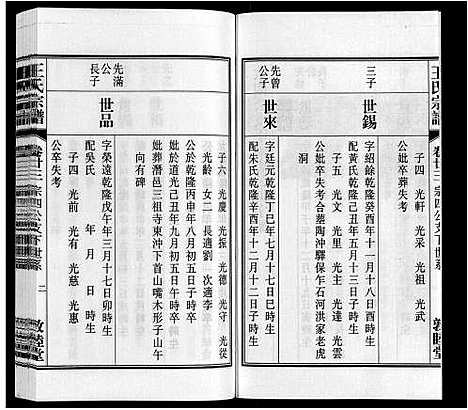 王氏宗譜
卷廿三 宗四公支下世系
敦睦堂
三子
世錫
子四 光軒 光采 光祖 光武
字紹餘乾隆癸酉年十一月十八日酉時生
配黃氏乾隆己丑年五月十三日子時生
子五 光文 光里 光主 光達 光雲
公妣卒葬失考合葬陶沖驛保乍石河洪家老虎
洞
先曾公子
世來
字廷元乾隆丁巳年七月十七日巳時生
配朱氏乾隆辛酉年十二月十二日子時生
子六 光慶 光振 光德 光守 光從
光齡 女二 長適劉 次適李
公歿乾隆丙申年八月初五日子時卒
妣歿於道光乙酉年九月初五日午時卒
妣葬潛邑三祖寺東沖下首山嘴木形子山午
向有碑
先滿公長子
世品
字榮遠乾隆戊午年三月十七日卯時生
配吳氏 年 月 日 時生
子四 光前 光有 光慈 光惠
公卒失考
王氏宗譜
卷廿三 宗四公支下世系
二
敦睦堂